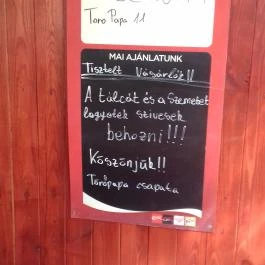 Töró Papa 11
MAI AJÁNLATUNK
Tisztelt Vásárlók!!
A tálcát és a szemetet
legyetek szívesek
behozni!!!
Köszönjük!!
Törőpapa csapata